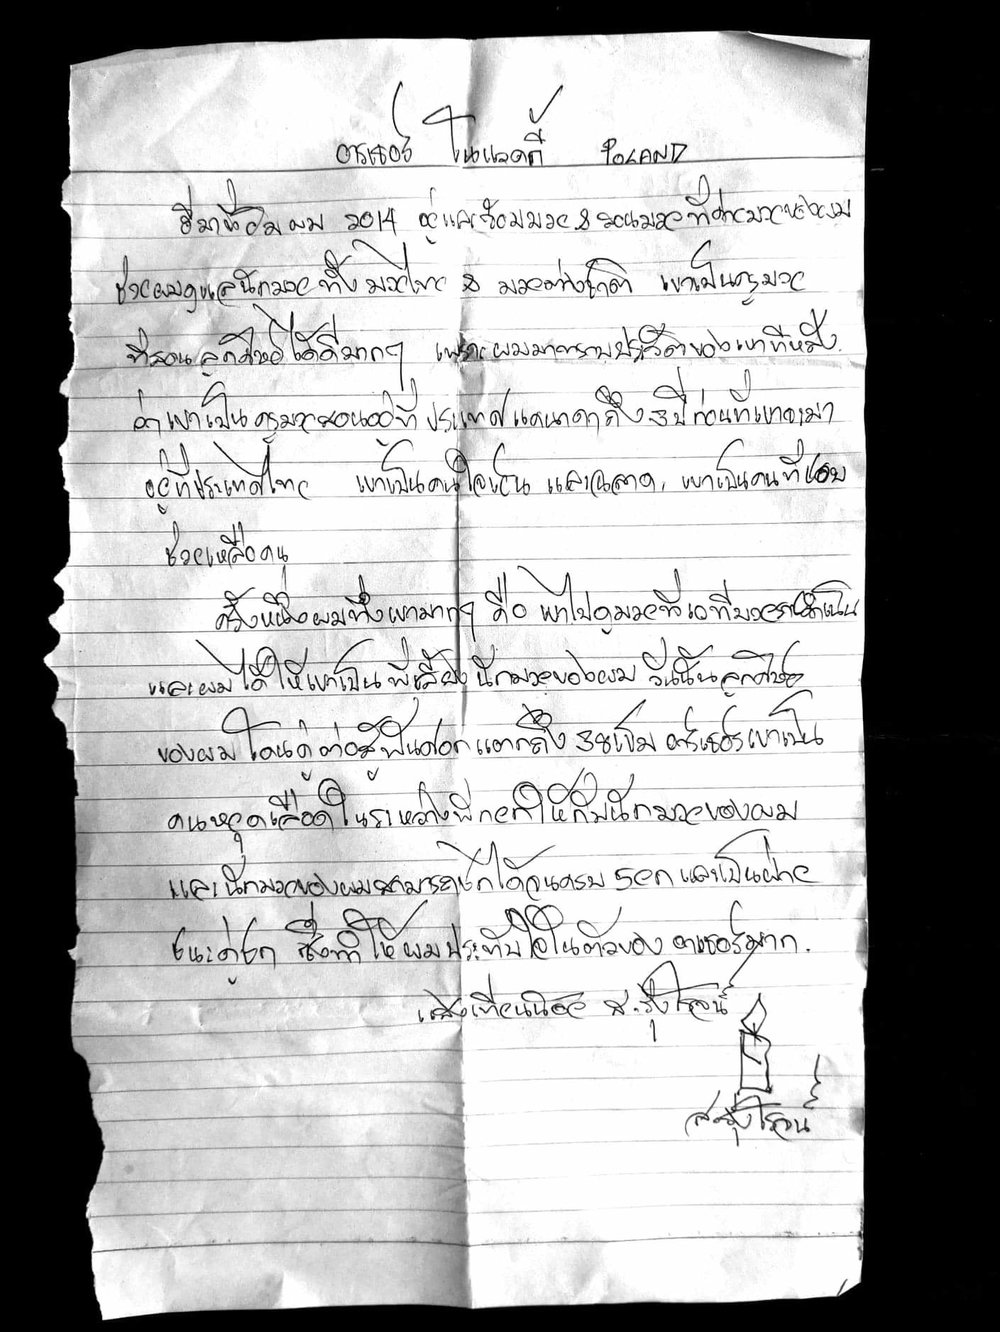 อาเธอร์ POLAND
ผม 2014 อยู่และซ้อมมวย & สอนมวยที่ค่ายมวยของผม
ช่วยผมดูแลนักมวย ทั้งมวยไทย & มวยต่างชาติ เขาเป็นครูมวย
ที่สอนลูกศิษย์ได้ดีมากๆ เพราะผมมาทราบประวัติของเขาทีหลัง
ว่าเขาเป็นครูมวยสอนอยู่ที่ประเทศแคนาดาถึง 3 ปี ก่อนที่เขาจะมา
อยู่ที่ประเทศไทย เขาเป็นคนใจเย็น และฉลาด, เขาเป็นคนที่ชอบ
ช่วยเหลือคน
ครั้งหนึ่งผมทึ่งเขามากๆ คือ พาไปดูมวยที่เวทีมวยราชดำเนิน
และผมได้ให้เขาเป็นพี่เลี้ยงนักมวยของผม วันนั้นลูกศิษย์
ของผมโดนคู่ต่อสู้ฟันศอกแตกถึง 38 เข็ม อาร์เธอร์เขาเป็น
คนหยุดเลือดในระหว่างพักยกให้กับนักมวยของผม
และนักมวยของผมสามารถชกได้จนครบ 5 ยก และเป็นฝ่าย
ชนะคู่ชก ซึ่งทำให้ผมประทับใจในตัวของ อาเธอร์มาก.
แสงเทียนน้อย ส.รุ่งโรจน์
ส.รุ่งโรจน์